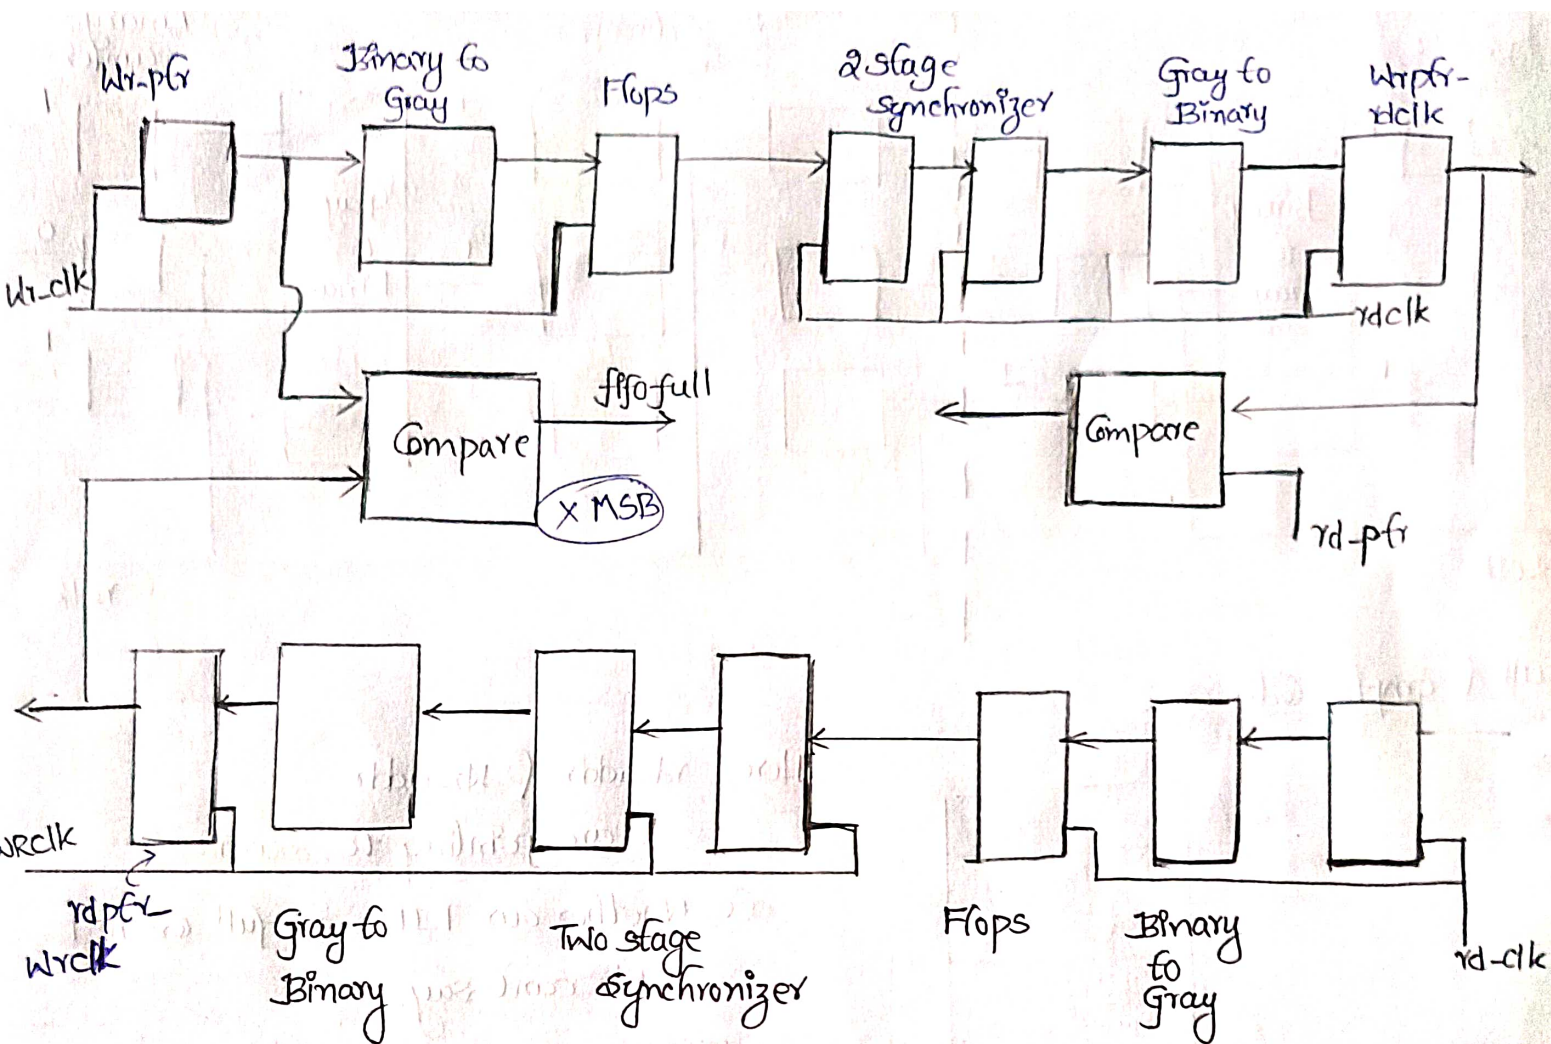 Wr-ptr
Binary to
Gray
Flops
2 stage
synchronizer
Gray to
Binary
Wrptr-
rdclk
Wr_clk
rdclk
fifofull
Compare
X MSB
Compare
rd-ptr
WRClk
rdptr_
Wrclk
Gray to
Binary
Two stage
synchronizer
Flops
Binary
to
Gray
rd-clk